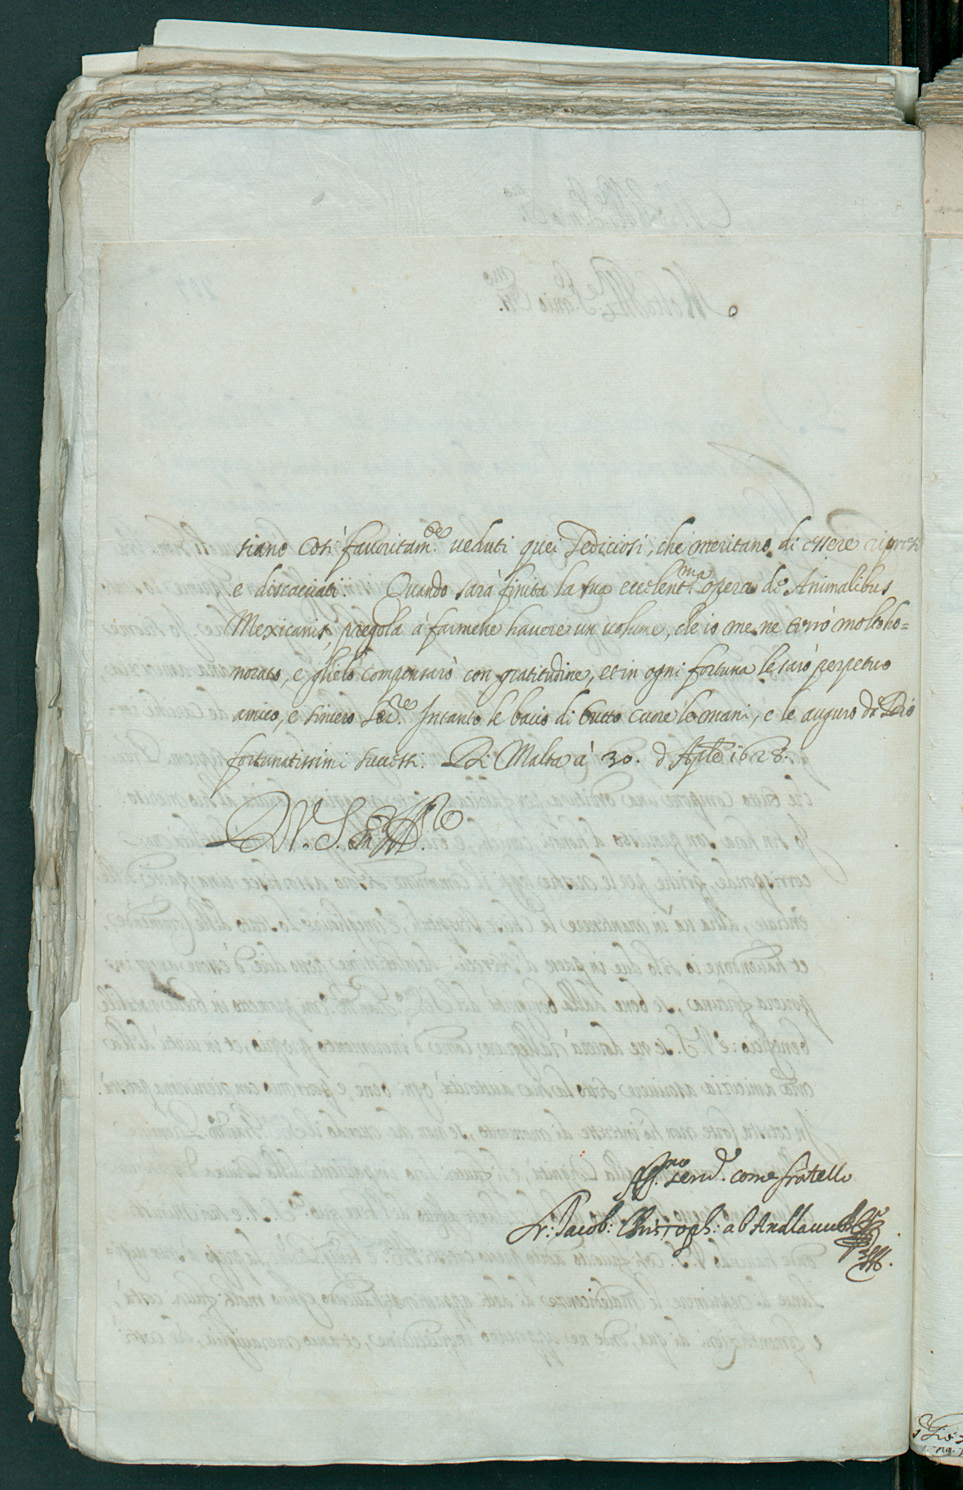 siano così favoritam.te veduti quei sediciosi, che meritano di essere ripresi
e discacciati. Quando sarà finita la sua eccelent.ma opera de Animalibus
Mexicanis, pregola à farmene havere un volume, che io me ne terrò molto ho=
norato, e glielo compensarò con gratitudine, et in ogni fortuna le sarò perpetuo
amico, e sincero Ser.re Intanto le bacio di tutto cuore le mani, e le auguro da Dio
fortunatissimi successi. Di Malta à 30. d'Aple 1628.
D V. S. 
Aff.mo serv.e come fratello
Fr: Jacob: Christoph: ab Andlauu